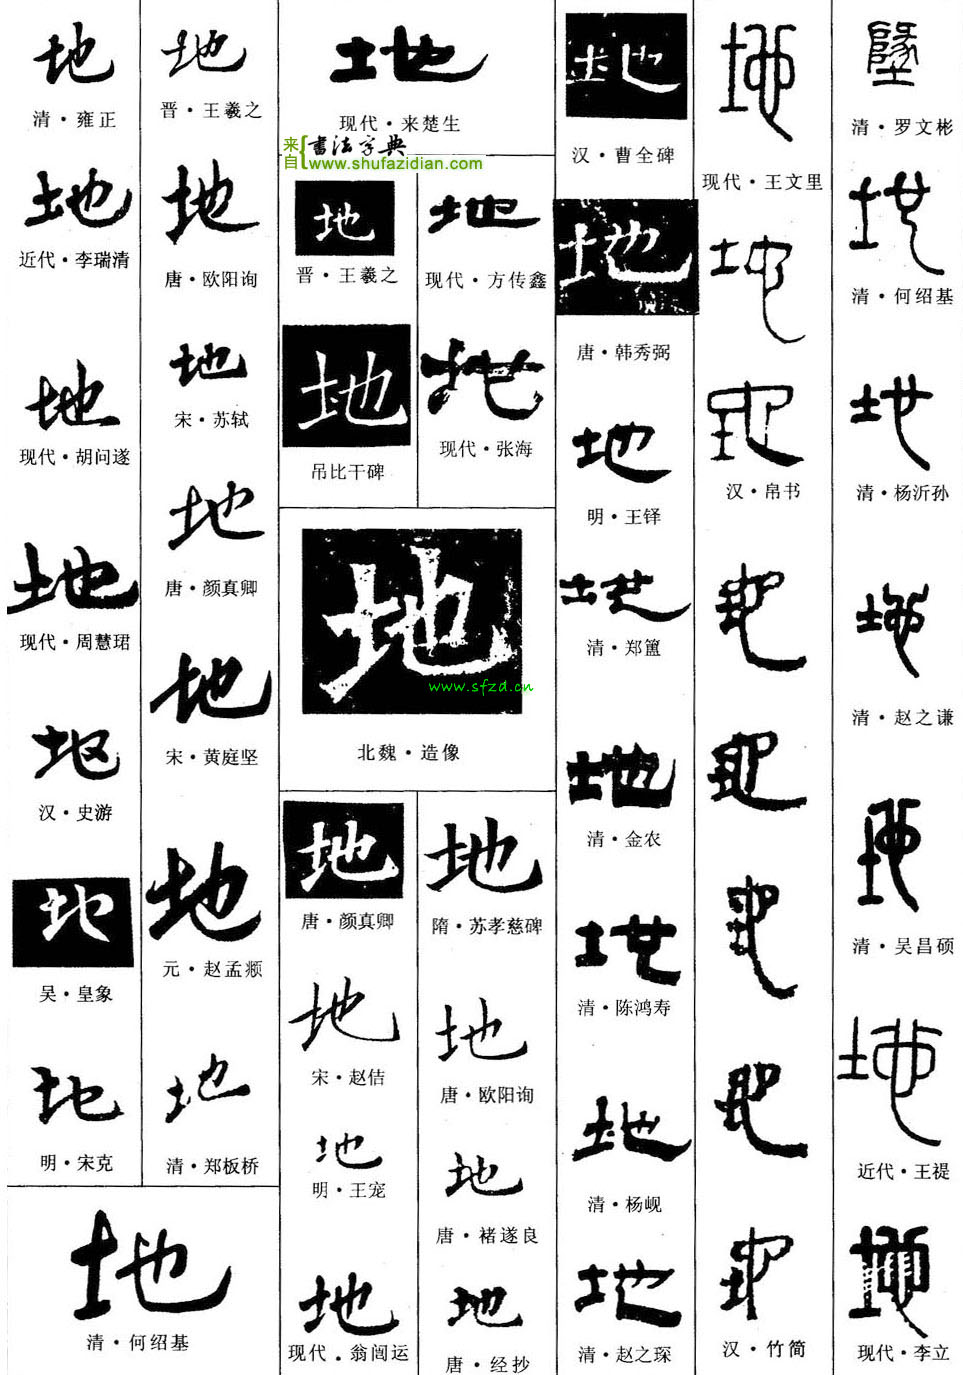 地
清·雍正
地
近代·李瑞清
地
现代·胡问遂
地
现代·周慧珺
地
汉·史游
地
吴·皇象
地
明·宋克
地
晋·王羲之
地
唐·欧阳询
地
宋·苏轼
地
唐·颜真卿
地
宋·黄庭坚
地
元·赵孟頫
地
清·郑板桥
地
清·何绍基
地
现代·来楚生
来自{書法字典
www.shufazidian.com
地
晋·王羲之
地
吊比干碑
地
现代·方传鑫
地
现代·张海
地
www.sfzd.cn
北魏·造像
地
唐·颜真卿
地
宋·赵佶
地
明·王宠
地
现代·翁闿运
地
隋·苏孝慈碑
地
唐·欧阳询
地
唐·褚遂良
地
唐·经抄
地
汉·曹全碑
地
唐·韩秀弼
地
明·王铎
地
清·郑簠
地
清·金农
地
清·陈鸿寿
地
清·杨岘
地
清·赵之琛
地
现代·王文里
地
地
汉·帛书
地
地
地
地
地
汉·竹简
墬
清·罗文彬
地
清·何绍基
地
清·杨沂孙
地
清·赵之谦
地
清·吴昌硕
地
近代·王禔
地
现代·李立